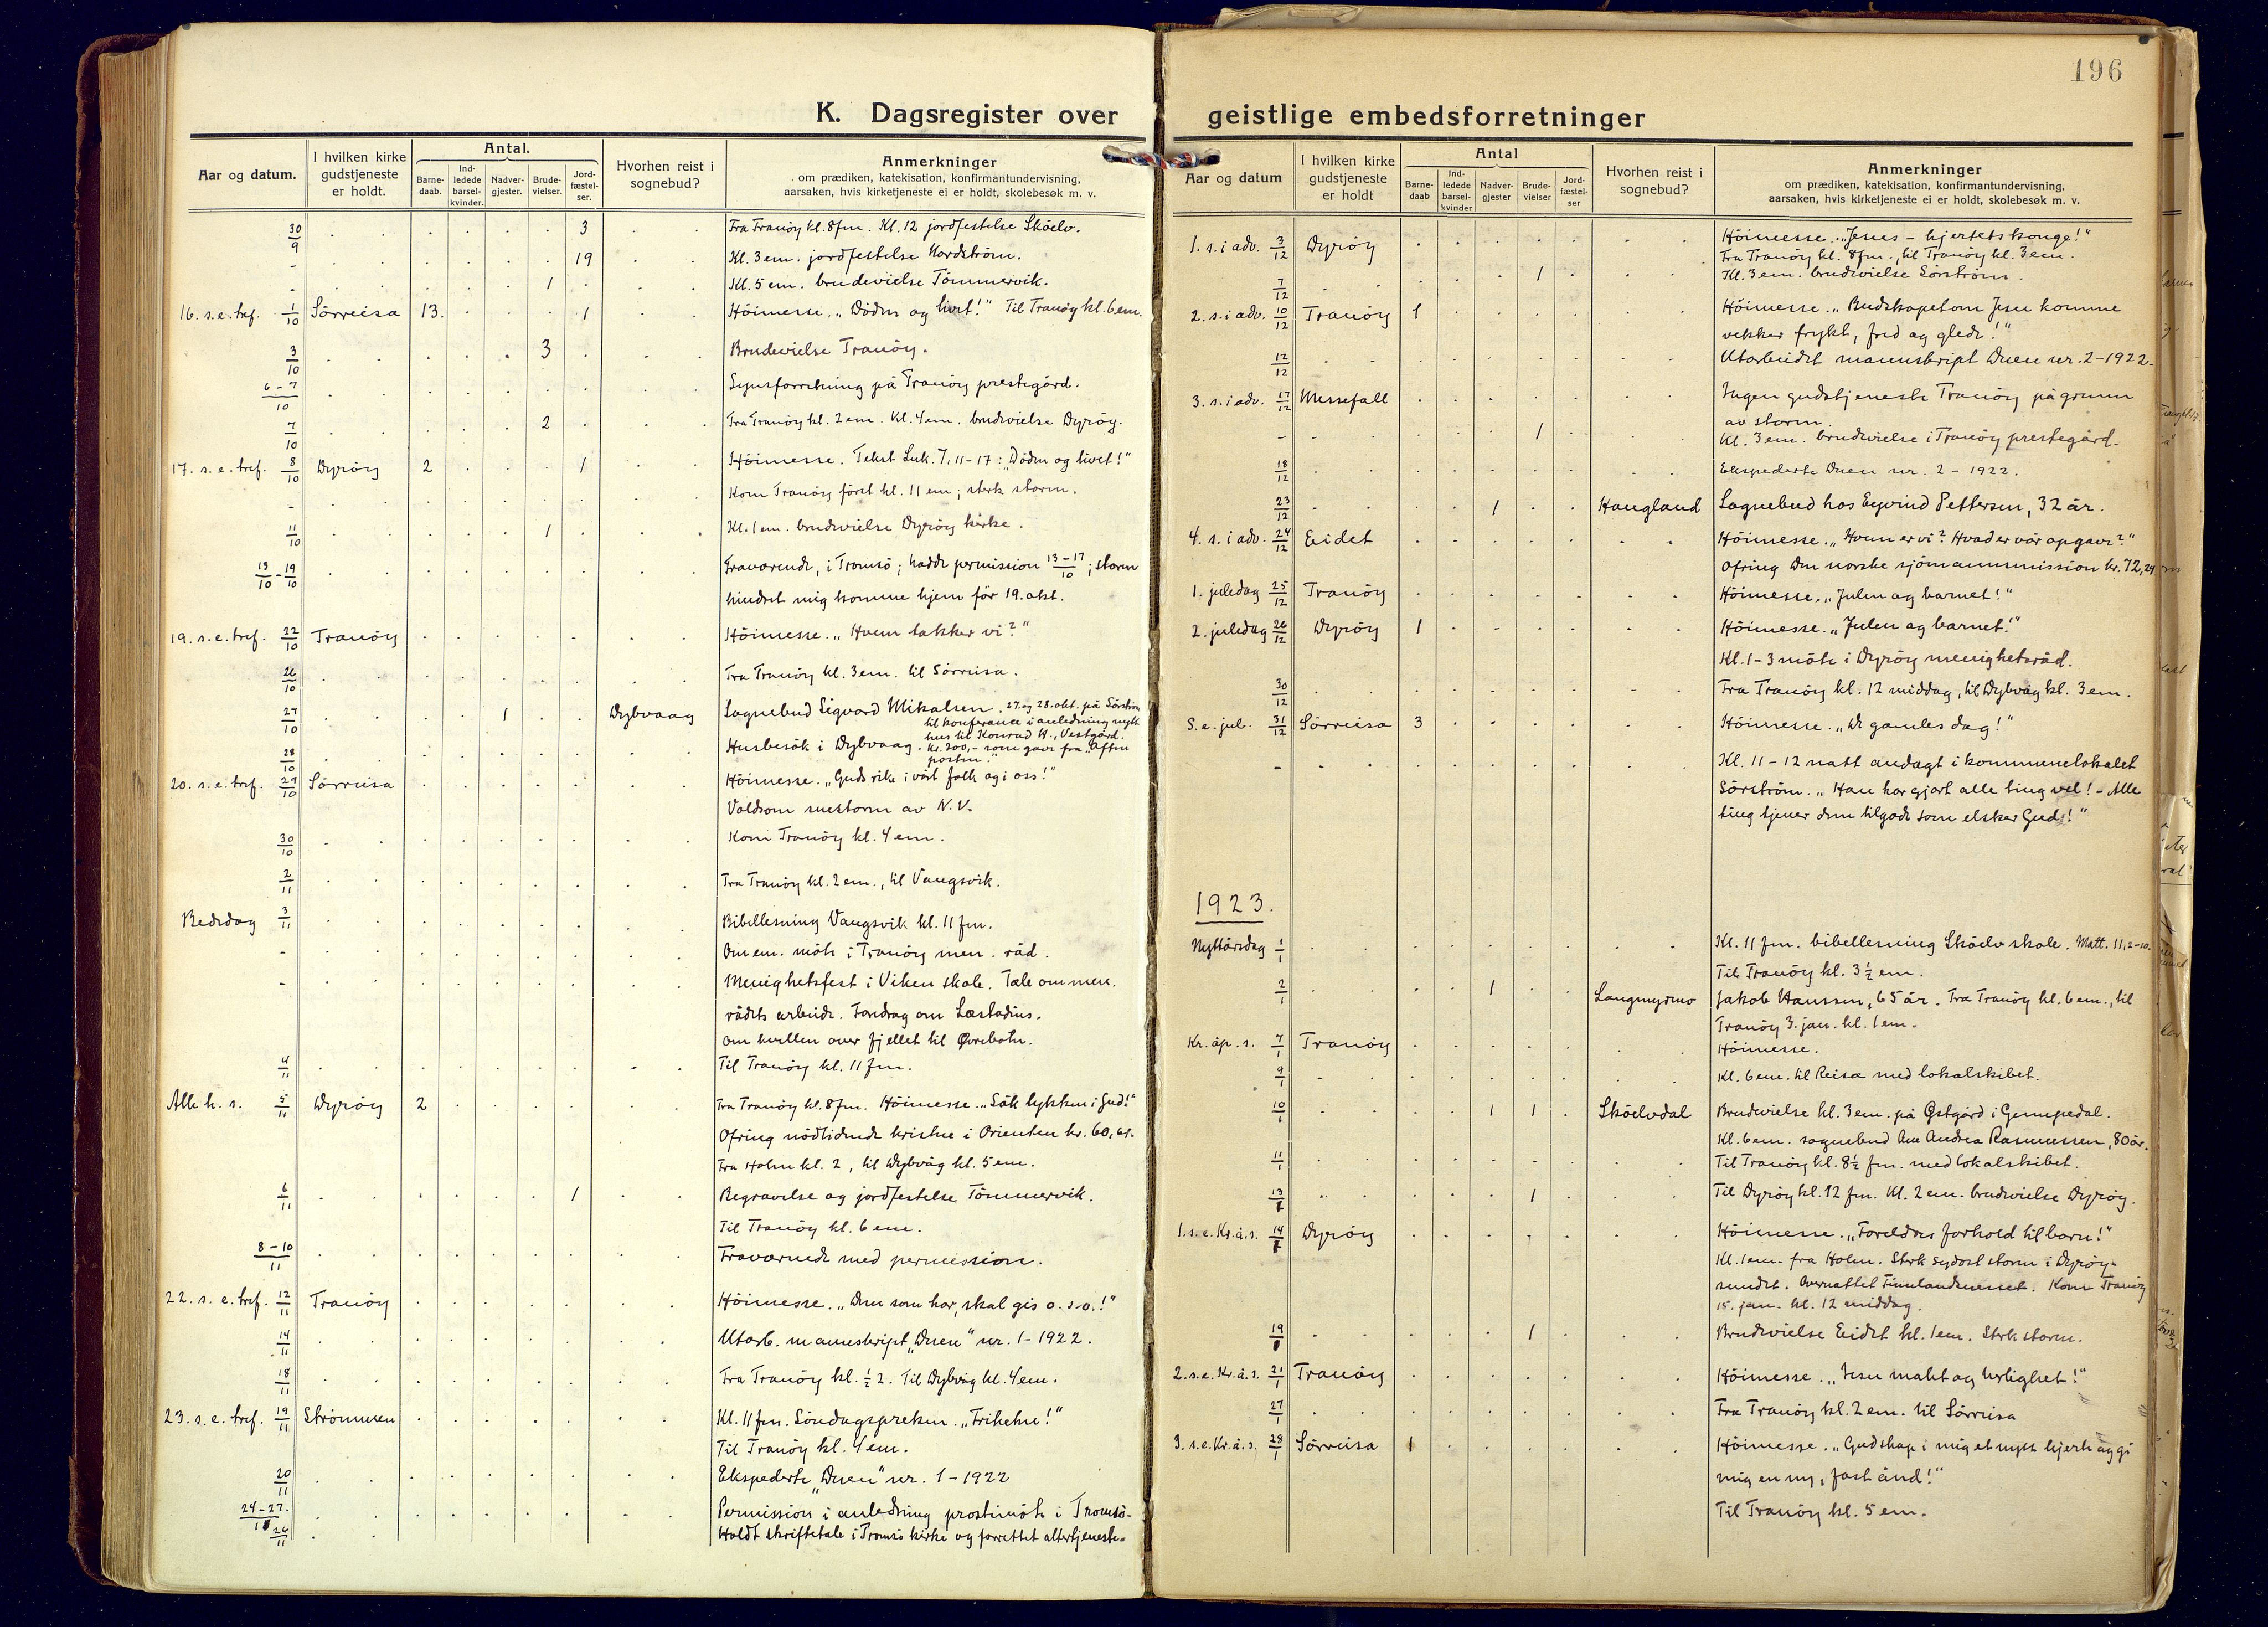 K. Dagsregister over
Aar og datum.
I hvilken kirke gudstjeneste er holdt.
Antal.
Barne-daab.
Ind-ledede barsel-kvinder.
Nadver-gjester.
Brude-vielser.
Jord-fæstel-ser.
Hvorhen reist i sognebud?
Anmerkninger
om prædiken, katekisation, konfirmantundervisning,
aarsaken, hvis kirketjeneste ei er holdt, skolebesøk m. v.
30/9 3 Fra Tranöy kl. 8 fm. Kl. 12 jordfestelse Sköelv.
- 19 Kl. 3 em. jordfestelse Nordström.
- 1 Kl. 5 em. brudevielse Tömmervik.
16. s. e. tref. 1/10 Sörreisa 13. 1 Höimesse. „Döden og livet!" Til Tranöy kl. 6 em.
3/10 3 Brudevielse Tranöy.
6-7/10 Synsforretning på Tranöy prestegård.
7/10 2 Fra Tranöy kl. 2 em. Kl. 4 em. brudevielse Dyröy.
17. s. e. tref. 8/10 Dyröy 2 1 Höimesse. Tekst Luk. 7, 11-17: „Döden og livet!"
- Kom Tranöy först kl. 11 em; sterk storm.
11/10 1 Kl. 1 em. brudevielse Dyröy kirke.
13/10-19/10 Fraværende, i Tromsö; hadde permission 13-17/10; storm
hindret mig komme hjem för 19. okt.
19. s. e. tref. 22/10 Tranöy Höimesse. „Hvem takker vi?"
26/10 Fra Tranöy kl. 3 em. til Sörreisa.
27/10 1 Dybvaag Sognebud Sigvard Mikalsen. 27. og 28. okt. på Sörström
til konferance i anledning nytt
hus til Konrad H., Vestgård.
28/10 Husbesök i Dybvaag. Kr. 200,- som gave fra „Aften
posten."
20. s. e. tref. 29/10 Sörreisa Höimesse. „Guds rike i vårt folk og i oss!"
Voldsom snestorm av N.V.
30/10 Kom Tranöy kl. 4 em.
2/11 Fra Tranöy kl. 2 em., til Vangsvik.
Bededag 3/11 Bibellesning Vangsvik kl. 11 fm.
- Om em. möte i Tranöy men. råd.
- Menighetsfest i Viken skole. Tale om men.
rådets arbeide. Foredrag om Læstadius.
Om kvellen over fjellet til Øvrebotn.
4/11 Til Tranöy kl. 11 fm.
Alle h. s. 5/11 Dyröy 2 Fra Tranöy kl. 8 fm. Höimesse. „Sök lykken i Gud!"
Ofring nödlidende kristne i Orienten kr. 60,61.
Fra Holm kl. 2, til Dybvåg kl. 5 em.
6/11 1 Begravelse og jordfestelse Tömmervik.
Til Tranöy kl. 6 em.
8-10/11 Fraværende med permission.
22. s. e. tref. 12/11 Tranöy Höimesse. „Den som har, skal gis o. s. v.!"
14/11 Utarb. manuskript „Duen" nr. 1-1922.
18/11 Fra Tranöy kl. ½ 2. Til Dybvåg kl. 4 em.
23. s. e. tref. 19/11 Strömmen Kl. 11 fm. Söndagspreken. „Frikeken!"
Til Tranöy kl. 4 em.
20/11 Ekspederte „Duen" nr. 1-1922
24-27./11 Permission i anledning prostimöte i Tromsö.
26/11 Holdt skriftetale i Tromsö kirke og forrettet altertjeneste.
196
geistlige embedsforretninger
Aar og datum
I hvilken kirke gudstjeneste er holdt
Antal
Barne-daab
Ind-ledede barsel-kvinder
Nadver-gjester
Brude-vielser
Jord-fæstel-ser
Hvorhen reist i sognebud?
Anmerkninger
om prædiken, katekisation, konfirmantundervisning,
aarsaken, hvis kirketjeneste ei er holdt, skolebesøk m. v.
1. s. i adv. 3/12 Dyröy Höimesse. „Jesus - hjertets konge!"
Fra Tranöy kl. 8 fm., til Tranöy kl. 3 em.
7/12 1 Kl. 3 em. brudevielse Sörström.
2. s. i adv. 10/12 Tranöy 1 Höimesse. „Budskapet om Jesu komme
vekker frykt, fred og glede!"
12/12 Utarbeidet manuskript Duen nr. 2-1922.
3. s. i adv. 17/12 Messefall Ingen gudstjeneste Tranöy på grunn
av storm.
- 1 Kl. 3 em. brudevielse i Tranöy prestegård.
18/12 Ekspederte Duen nr. 2-1922.
23/12 1 Haugland Sognebud hos Eyvind Pettersen, 32 år.
4. s. i adv. 24/12 Eidet Höimesse. „Hvem er vi? Hvad er vår opgave?"
Ofring Den norske sjömannsmission kr. 72,24
1. juledag 25/12 Tranöy Höimesse. „Julen og barnet!"
2. juledag 26/12 Dyröy 1 Höimesse. „Julen og barnet!"
Kl. 1-3 möte i Dyröy menighetsråd.
30/12 Fra Tranöy kl. 12 middag, til Dybvåg kl. 3 em.
S. e. jul. 31/12 Sörreisa 3 Höimesse. „De gamles dag!"
- Kl. 11-12 natt andagt i kommunelokalet
Sörström. „Han har gjort alle ting vel! - Alle
ting tjener dem til gode som elsker Gud!"
1923.
Nyttårsdag 1/1 Kl. 11 fm. bibellesning Sköelv skole. Matt. 11, 2-10.
Til Tranöy kl. 3½ em.
2/1 1 Langmymo Jakob Hanssen, 65 år. Fra Tranöy kl. 6 em., til
Tranöy 3. jan. kl. 1 em.
Kr. åp. s. 7/1 Tranöy Höimesse.
9/1 Kl. 6 em. til Reisa med lokalskibet.
10/1 1 1 Sköelvdal Brudevielse kl. 3 em. på Østgård i Gumpedal.
Kl. 6 em. sognebud Ane Andrea Rasmussen, 80 år.
11/1 Til Tranöy kl. 8½ fm. med lokalskibet.
13/1 1 Til Dyröy kl. 12 fm. Kl. 2 em. brudevielse Dyröy.
1. s. e. Kr. å. s. 14/1 Dyröy Höimesse. „Foreldres forhold til barn!"
Kl. 1 em. fra Holm. Sterk sydost storm i Dyröy-
sundet. Overnattet Finnlandsnesset. Kom Tranöy
15. jan. kl. 12 middag.
19/1 1 Brudevielse Eidet kl. 1 em. Sterk storm.
2. s. e. Kr. å. s. 21/1 Tranöy Höimesse. „Jesu makt og herlighet!"
27/1 Fra Tranöy kl. 2 em. til Sörreisa
3. s. e. Kr. å. s. 28/1 Sörreisa 1 Höimesse. „Gud skap i mig et nytt hjerte og gi
mig en ny, fast ånd!"
Til Tranöy kl. 5 em.